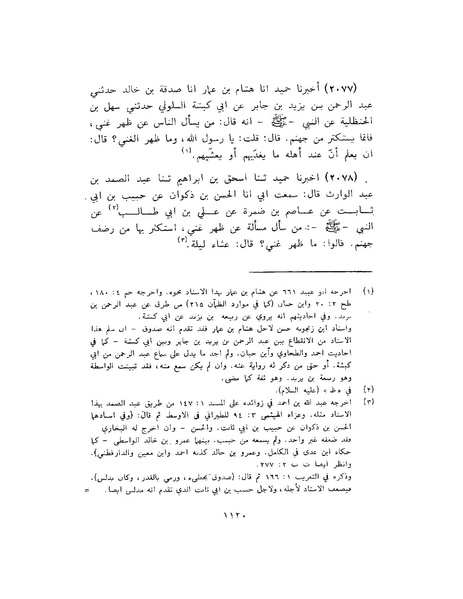 (٢٠٧٧) أخبرنا حميد انا هشام بن عمار انا صدقة بن خالد حدثني
عبد الرحمن بن يزيد بن جابر عن ابي كبشة السلولي حدثني سهل بن
الحنظلية عن النبي - ﷺ - انه قال: من يسأل الناس عن ظهر غنى،
فانما يستكثر من جهنم. قال: قلت: يا رسول الله، وما ظهر الغنى؟ قال:
ان يعلم أنّ عند أهله ما يغدّيهم أو يعشّيهم.(١)
(٢٠٧٨) اخبرنا حميد ثنا اسحق بن ابراهيم ثنا عبد الصمد بن
عبد الوارث قال: سمعت ابي انا الحسن بن ذكوان عن حبيب بن ابي
ثابت عن عاصم بن ضمرة عن علي بن ابي طالب(٢) عن
النبي - ﷺ -: من سأل مسألة عن ظهر غنى، استكثر بها من رضف
جهنم. قالوا: ما ظهر غنى؟ قال: عشاء ليلة.(٣)
(١) اخرجه ابو عبيد ٦٦١ عن هشام بن عمار بهذا الاسناد نحوه. واخرجه حم ٤: ١٨٠،
طح ٢: ٢٠ وابن حبان (كما في موارد الظمآن ٢١٥) من طرق عن عبد الرحمن بن
يزيد. وفي احاديثهم انه يروي عن ربيعة بن يزيد عن ابي كبشة.
واسناد ابن زنجويه حسن لاجل هشام بن عمار فقد تقدم انه صدوق - ان سلم هذا
الاسناد من الانقطاع بين عبد الرحمن بن يزيد بن جابر وبين أبي كبشة - كما في
احاديث احمد والطحاوي وأبن حبان. ولم اجد ما يدل على سماع عبد الرحمن من أبي
كبشة. أو حتى من ذكر له رواية عنه. وان لم يكن سمع منه، فقد تبينت الواسطة
وهو ربيعة بن يزيد. وهو ثقة كما مضى.
(٢) في «ظ» (عليه السلام).
(٣) أخرجه عبد الله بن احمد في زوائده على المسند ١: ١٤٧ من طريق عبد الصمد بهذا
الاسناد مثله. وعزاه الهيثمي ٣: ٩٤ للطبراني في الاوسط ثم قال: (وفي اسنادهما
الحسن بن ذكوان عن حبيب بن أبي ثابت. والحسن - وان اخرج له البخاري
فقد ضعفه غير واحد. ولم يسمعه من حبيب. بينهما عمرو بن خالد الواسطي - كما
حكاه ابن عدي في الكامل. وعمرو بن خالد كذبه احمد وابن معين والدارقطني).
وانظر ايضا ت ت ٢: ٢٧٧.
وذكره في التقريب ١: ١٦٦ ثم قال: (صدوق يخطىء، ورمي بالقدر، وكان يدلس).
فيضعف الاسناد لأجله، ولاجل حبيب بن ابي ثابت الذي تقدم انه مدلس ايضا. =
١١٢٠